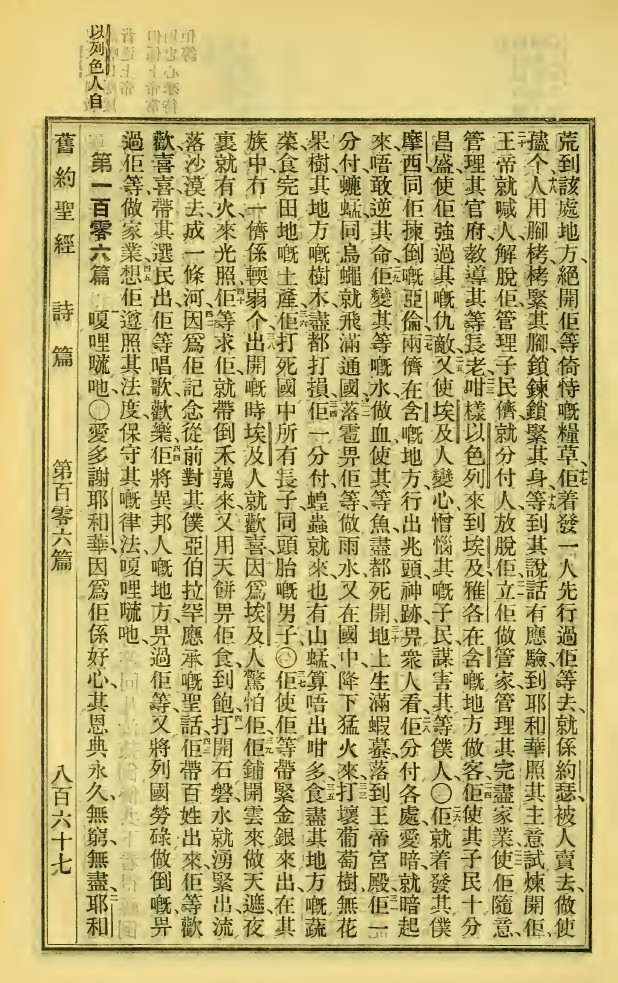 荒到該處地方、絕開佢等倚恃嘅糧草、佢着發一人先行過佢等去、就係約瑟被人賣去做使
儘个人用腳栲栲緊其腳鎖鍊鎖緊其身、等到其說話有應驗、到耶和華照其主意試煉開佢、
王帝就喊人解脫佢、管理子民儕就分付人放脫佢、立佢做管家管理其完盡家業、使佢隨意
管理其官府、教導其等長老、咁樣以色列來到埃及、雅各在含嘅地方做客、佢使其子民十分
昌盛、使佢強過其嘅仇敵、又使埃及人變心憎惱其嘅子民、謀害其等僕人〇佢就着發其僕
摩西、同佢揀倒嘅亞倫、兩儕在含嘅地方行出兆頭神跡畀眾人看、佢分付各處愛暗就暗起
來唔敢逆其命、佢變其等嘅水做血、使其等魚盡都死開、地上生滿蝦蟇、落到王帝宮殿、佢一
分付蠅蜢同烏蠅就飛滿通國、落雹畀佢等做雨水、又在國中降下猛火來、打壞葡萄樹無花
果樹、其地方嘅樹木盡都打損、佢一分付蝗蟲就來、也有山蜢算唔出咁多、食盡其地方嘅蔬
菜、食完田地嘅土產、佢打死國中所有長子、同頭胎嘅男子〇佢使佢等帶緊金銀來出、在其
族中冇一儕係輭弱个、出開嘅時埃及人就歡喜、因爲埃及人驚怕佢、佢鋪開雲來做天遮、夜
裏就有火來光照、佢等求佢就帶倒禾鶉來、又用天餅畀佢食到飽、打開石磐水就湧緊出、流
落沙漠去成一條河、因爲佢記念從前對其僕亞伯拉罕應承嘅聖話、佢帶百姓出來、佢等歡
歡喜喜、帶其選民出、佢等唱歌歡樂、佢將異邦人嘅地方畀過佢等、又將列國勞碌做倒嘅畀
過佢等做家業、想佢遵照其法度、保守其嘅律法、嗄哩㗭吔、
第一百零六篇 嗄哩㗭吔、〇愛多謝耶和華、因爲佢係好心、其恩典永久無窮無盡、耶和
舊約聖經 詩篇 第百零六篇 八百六十七
以列色人自